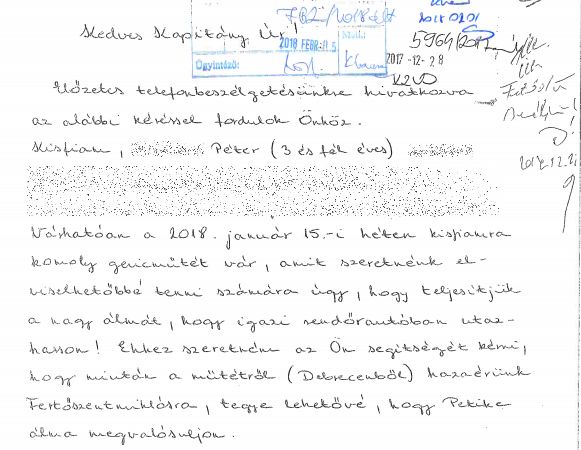 Kedves Kapitány Úr!
2018 FEBR
Ügyintéző:
2017 -12- 28
Előzetes telefonbeszélgetésünkre hivatkozva
az alábbi kéréssel fordulok Önhöz.
Kisfiam, Péter (3 és fél éves)
Várhatóan a 2018. január 15.-i héten kisfiamra
komoly gerincműtét vár, amit szeretnénk el-
viselhetőbbé tenni számára úgy, hogy teljesítjük
a nagy álmát, hogy igazi rendőrautóban utaz-
hasson! Ehhez szeretném az Ön segítségét kérni,
hogy miután a műtétről (Debrecenből) hazaérünk
Fertőszentmiklósra, tegye lehetővé, hogy Petike
álma megvalósuljon.